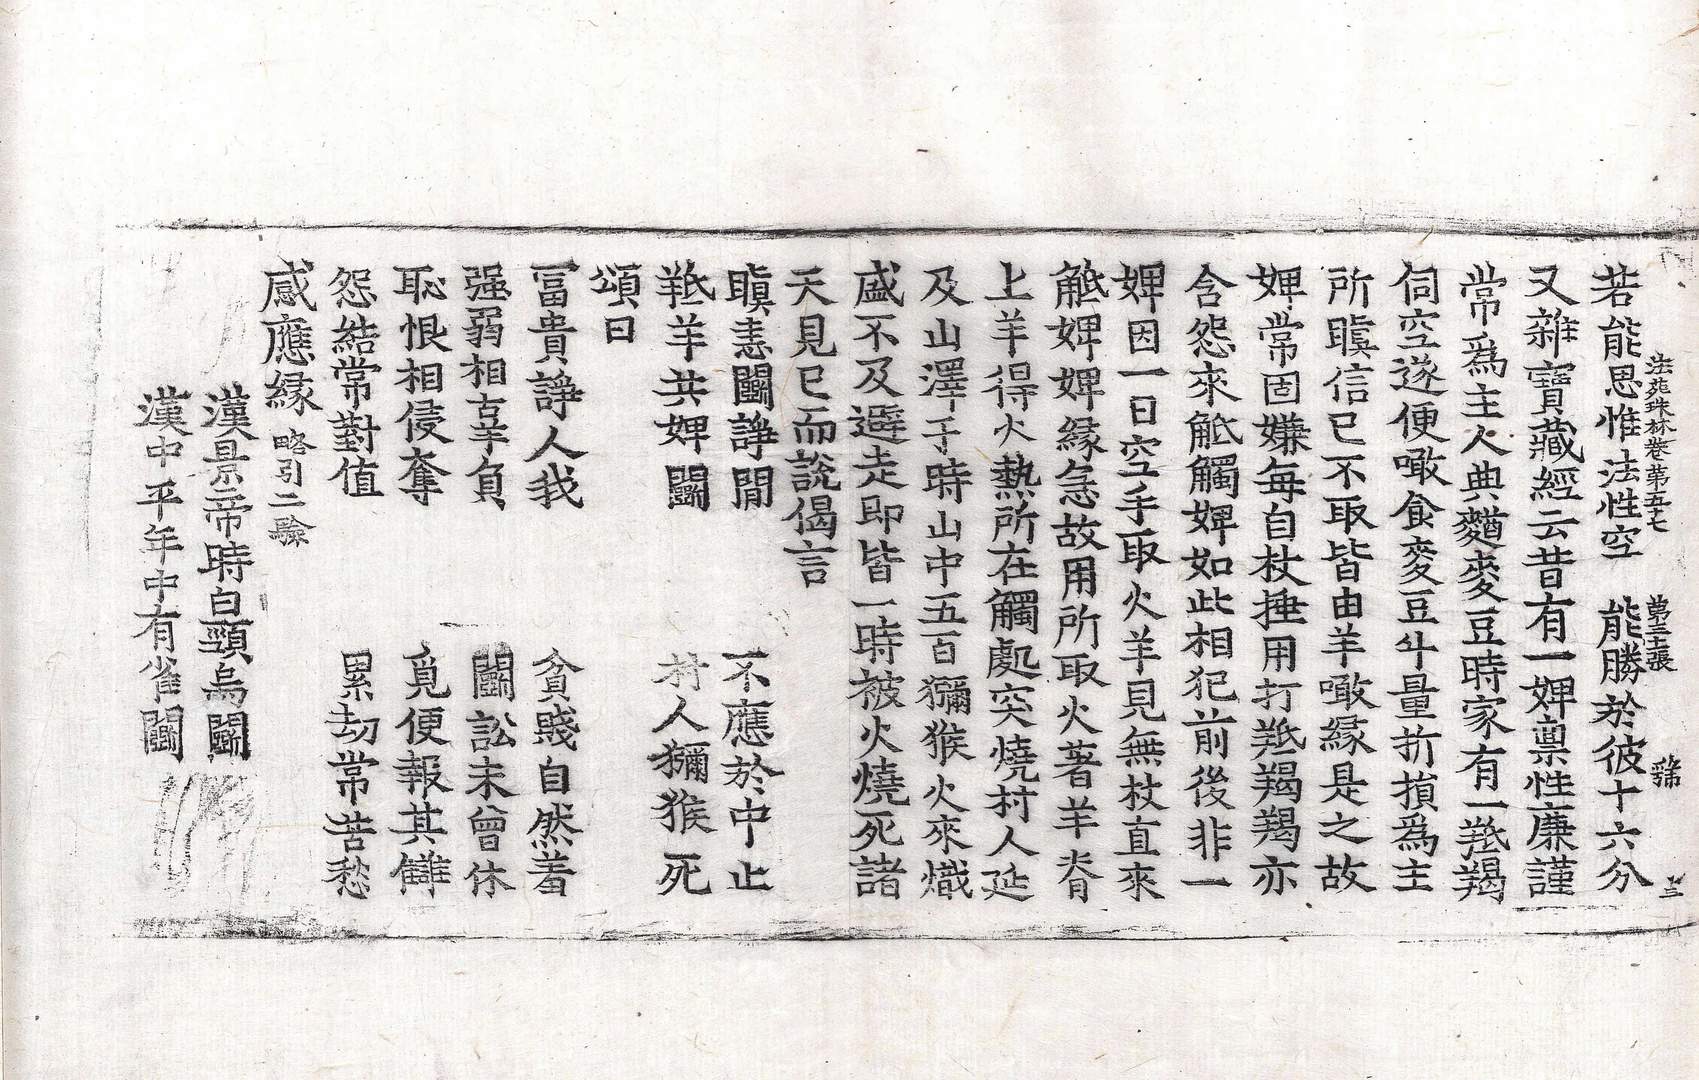 若能思惟法性空　能勝於彼十六分
法苑珠林卷第五十七　第三十張
又雜寶藏經云昔有一婢禀性廉謹
常爲主人典䴭麥豆時家有一羝羯
伺空遂便噉食麥豆斗量折損爲主
所瞋信已不取皆由羊噉緣是之故
婢常固嫌每自杖捶用打羝羯羯亦
含怨來觝觸婢如此相犯前後非一
婢因一日空手取火羊見無杖直來
觝婢婢緣急故用所取火著羊脊
上羊得火熱所在觸處突燒村人延
及山澤于時山中五百獼猴火來熾
盛不及避走即皆一時被火燒死諸
天見已而說偈言
瞋恚鬭諍閒　不應於中止
羝羊共婢鬭　村人獼猴死
頌曰
冨貴諍人我　貧賤自然羞
强弱相古辛負　鬭訟未曾休
恥恨相侵奪　覓便報其讎
怨結常對值　累劫常苦愁
感應緣 略引二驗
漢景帝時白頸烏鬭
漢中平年中有雀鬭